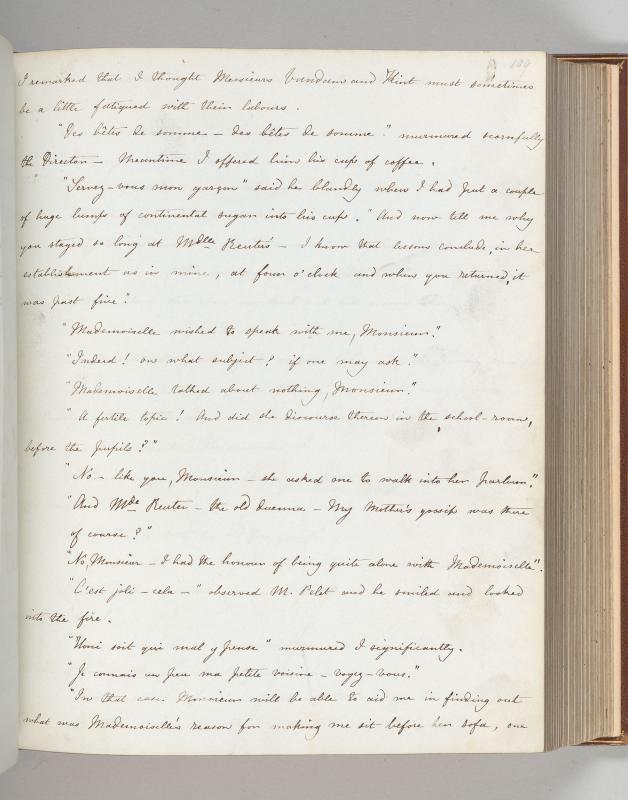 189
I remarked that I thought Messieurs Vandam and Flint must sometimes
be a little fatigued with their labours.
"Des bêtes de somme – des bêtes de somme" murmured scornfully
the Director – Meantime I offered him his cup of coffee.
"Servez-vous mon garçon" said he blandly when I had put a couple
of huge lumps of continental sugar into his cup. "And now tell me why
you stayed so long at Mdlle Reuter's – I know that lessons conclude, in her
establishment as in mine, at four o'clock and when you returned, it
was past five".
"Mademoiselle wished to speak with me, Monsieur."
"Indeed! on what subject? if one may ask."
"Mademoiselle talked about nothing, Monsieur."
"A fertile topic! And did she discourse thereon in the school-room,
before the pupils?"
"No – like you, Monsieur – she asked me to walk into her parlour."
"And Mde Reuter – the old duenna – My Mother's gossip was there
of course?"
"No, Monsieur – I had the honour of being quite alone with Mademoiselle".
"C'est joli – cela –" observed M. Pelet and he smiled and looked
into the fire.
"Honi soit qui mal y pense" murmured I significantly.
"Je connais un peu ma petite voisine – voyez-vous."
"In that case Monsieur will be able to aid me in finding out
what was Mademoiselle's reason for making me sit before her sofa, one